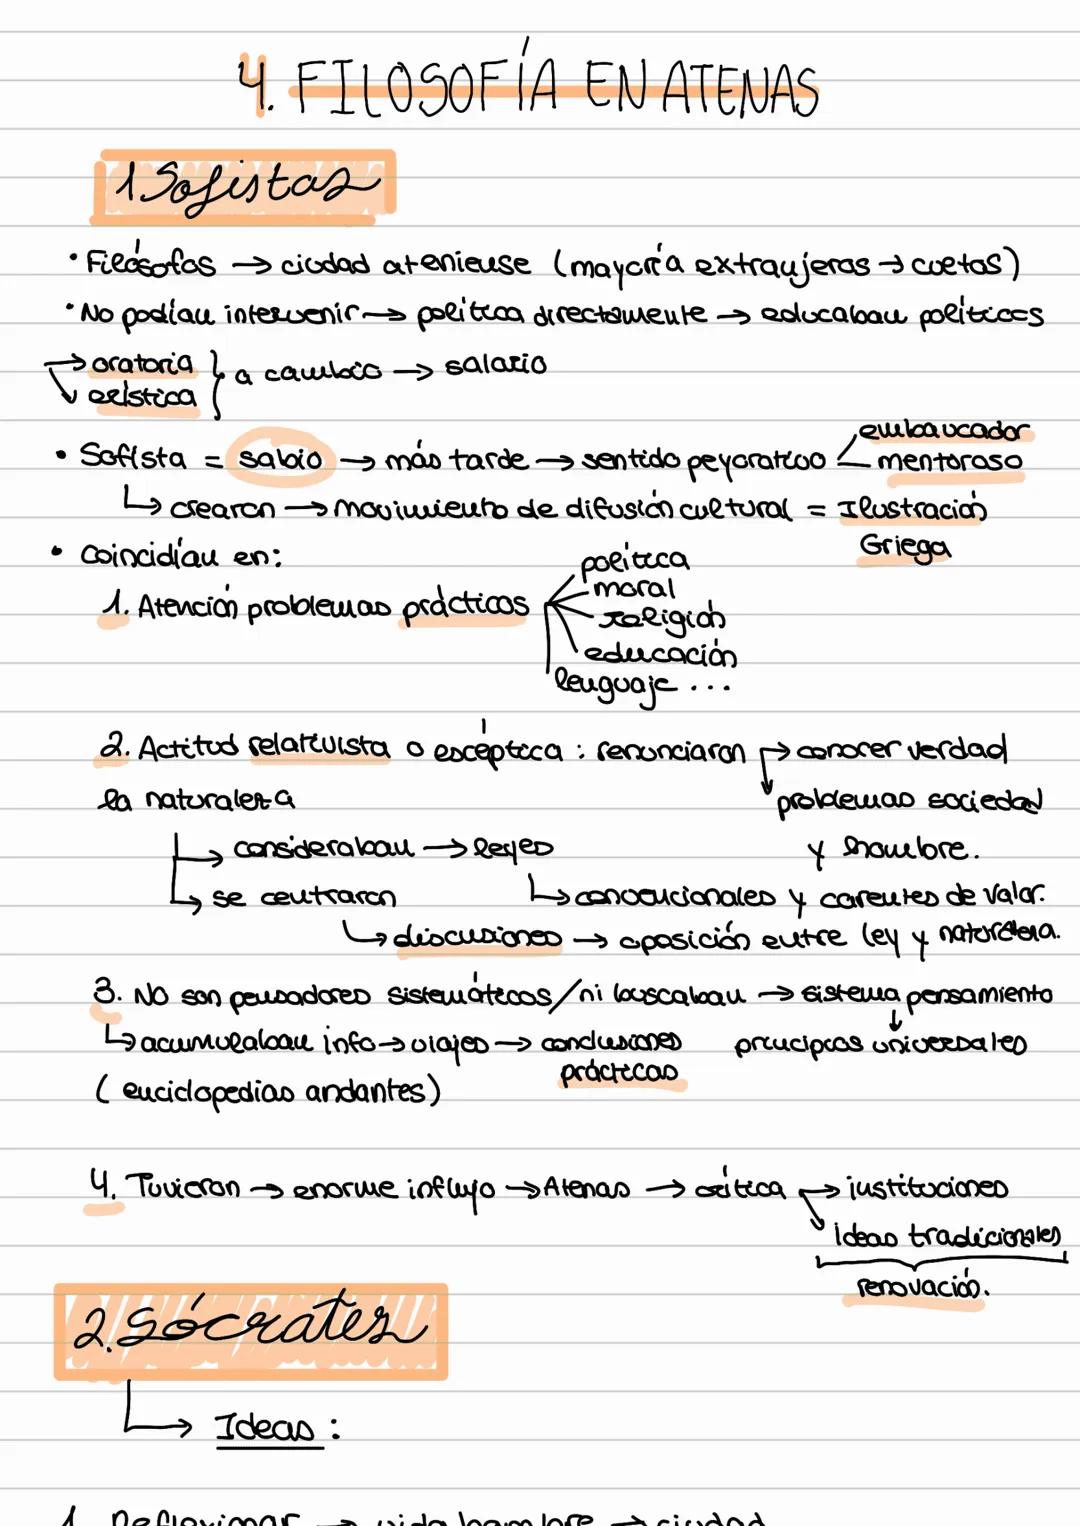 4. FILOSOFÍA EN ATENAS
1 Sofistas
• Filósofos → ciudad ateniense (mayoría extranjeros → cuetos)
• No podían intervenir → política directamente → educaban políticos
→ oratoria
→ erística } a cambio → salario
• Sofista = sabio → más tarde → sentido peyorativo
embaucador
mentoroso
↳ crearon → movimiento de difusión cultural = Ilustración
Griega
• Coincidían en:
1. Atención problemas prácticos
política
moral
religión
educación
lenguaje ...
2. Actitud relativista o escéptica : renunciaron → conocer verdad
la naturaleza
problemas sociedad
y hombre.
↳ consideraban → leyes
↳ se centraron
↳ convencionales y carentes de valor.
↳ discusiones → oposición entre ley y naturaleza.
3. NO son pensadores sistemáticos/ni buscaban → sistema pensamiento
↳ acumulaban info → viajes → conclusiones
prácticas
principios universales
( enciclopedias andantes)
4. Tuvieron → enorme influjo → Atenas → crítica → instituciones
ideas tradicionales
renovación.
2. Sócrates
↳ Ideas :
1. Reflexionar → vida hombre → ciudad